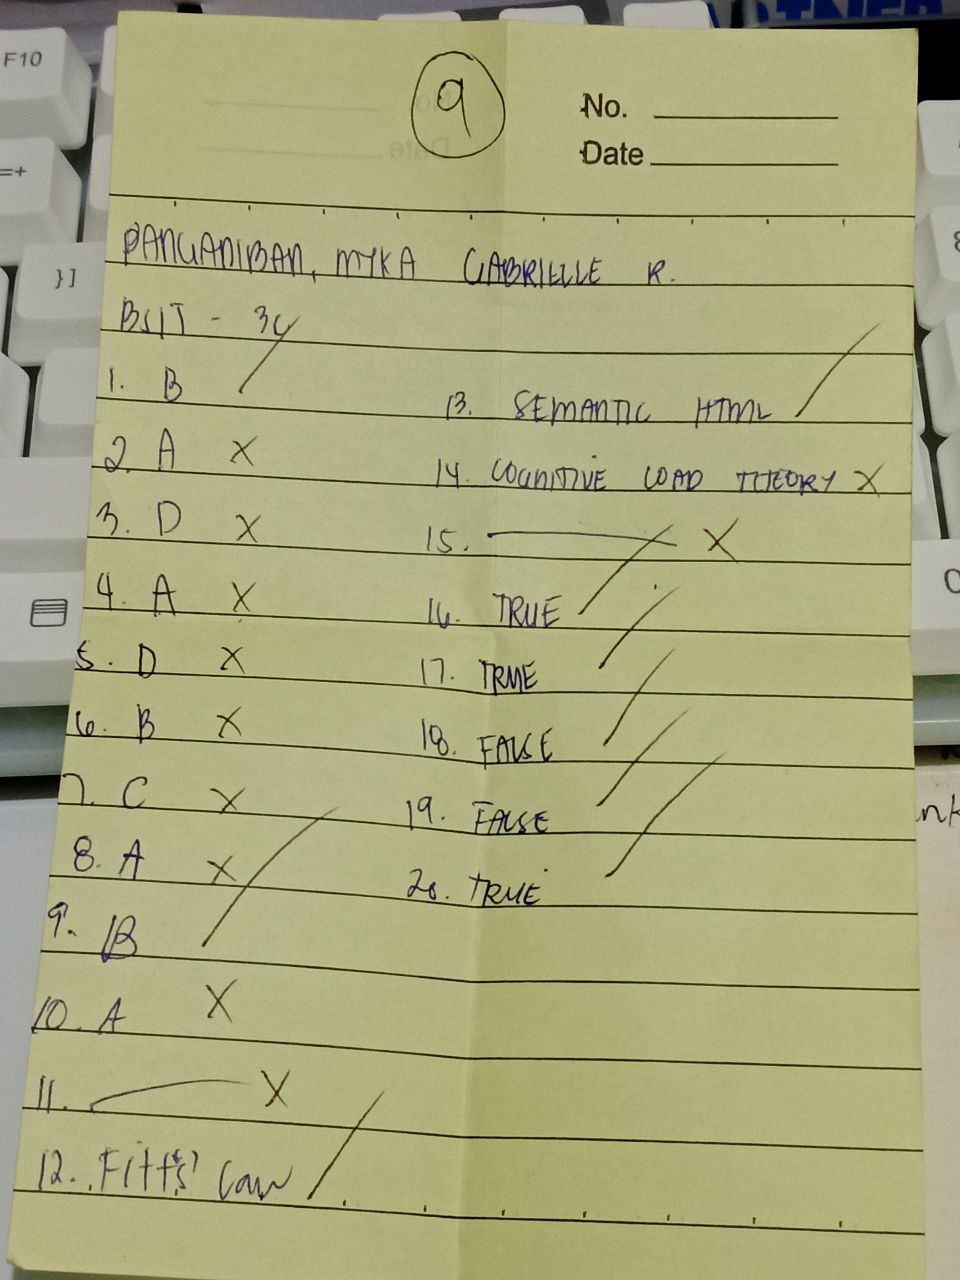 RTNER
F10
=+
}]
9
No.
Date
PANGANIBAN, MYKA GABRIELLE R.
BSIT - 3C
1. B
2. A X
3. D X
4. A X
5. D X
6. B X
7. C X
8. A X
9. B
10. A X
11. X
12. Fitts' Law
13. SEMANTIC HTML
14. COGNITIVE LOAD THEORY X
15. X
16. TRUE
17. TRUE
18. FALSE
19. FALSE
20. TRUE